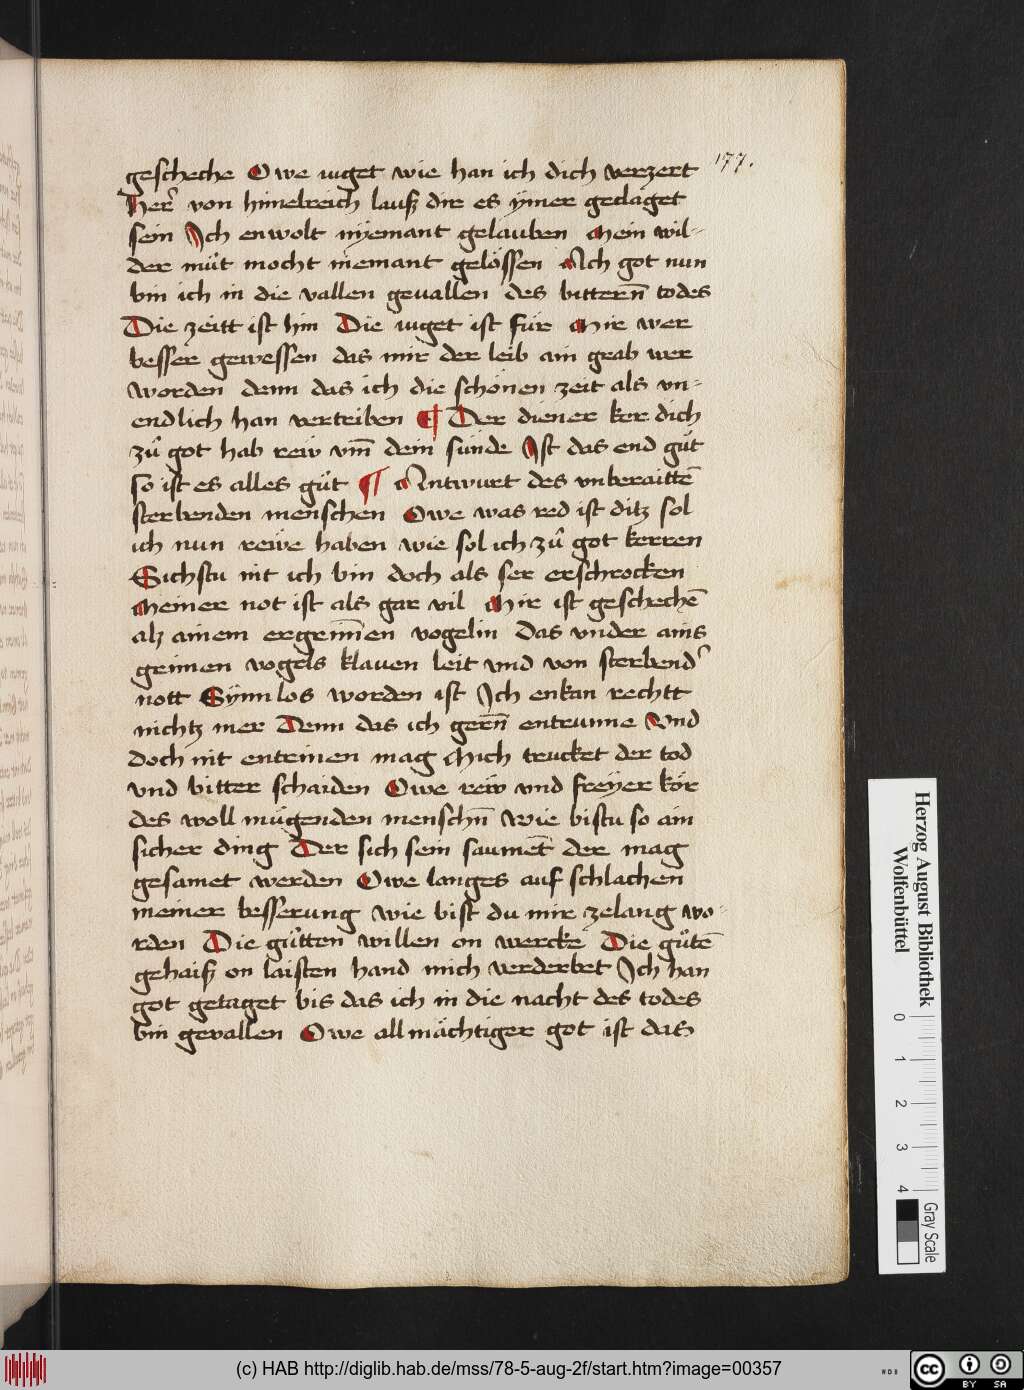 177.
gescheche Owe iuget wie han ich dich verzert
Her͛ von himelreich lauß dir es ymer geclaget
sein Ich enwolt nyemant gelauben Mein wil-
der mu̍t mocht niemant gelössen Ach got nun
bin ich in die vallen gevallen des bittern̄ todes
Die zeitt ist hin Die iuget ist für Mir wer
besser gewessen das mir der leib ain grab wer
worden denn das ich die schönen zeit als vn-
endlich han vertriben ¶ Der diener ker dich
zů got hab rew vm̄ dein sünde Ist das end gůt
so ist es alles gůt ¶ Antwurt des vnberaittē
sterbenden menschen Owe was red ist ditz sol
ich nun rewe haben wie sol ich zů got kerren
Sichstu nit ich bin doch als ser erschrocken
Meiner not ist als gar vil Mir ist geschechē
alz ainem ergrim̄en vogelin Das vnder ains
grimen vogels klauen leit vnd von sterbend͛
nott Synnlos worden ist Ich enkan rechtt
nichtz mer Denn das ich gern̄ entrunne Vnd
doch nit entrinen mag Mich trucket der tod
vnd bitter schaiden Owe rew vnd freyer kör
des woll mügenden menschn̄ wie bistu so ain
sicher ding Der sich sein saumet der mag
gesamet werden Owe langes auf schlachen
meiner besserung wie bist du mir zelang wo-
rden Die gůtten willen on wercke Die gůtē
gehaiß on laisten hand mich verderbet Ich han
got getaget bis das ich in die nacht des todes
bin gevallen Owe allmächtiger got ist das
Herzog August Bibliothek
Wolfenbüttel
0 1 2 3 4
Gray Scale
(c) HAB http://diglib.hab.de/mss/78-5-aug-2f/start.htm?image=00357
WDB
cc BY SA